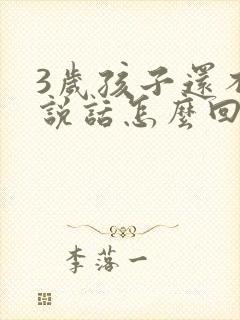 3歲孩子還不
說話怎麼回
李落一